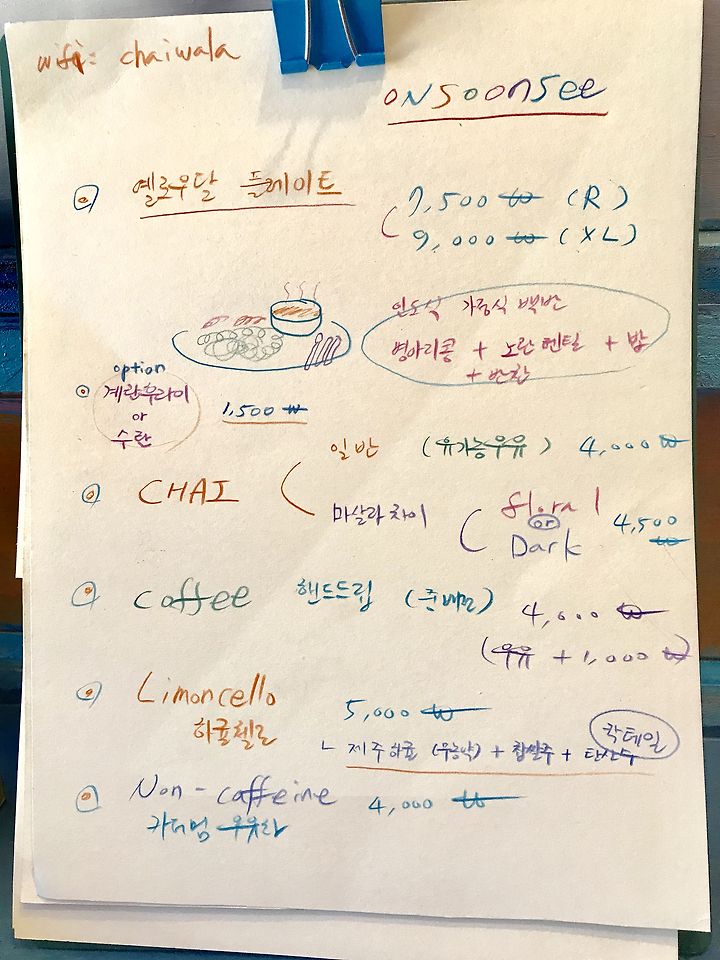 wifi: chaiwala
ONSOONSEE
옐로우달 플레이트
7,500 ₩ (R)
9,000 ₩ (XL)
인도식 가정식 백반
병아리콩 + 노란렌틸 + 밥
+ 반찬
option
계란후라이
or
수란
1,500 ₩
CHAI
일반 (유기농우유) 4,000 ₩
마살라 차이
floral
or
Dark
4,500 ₩
coffee 핸드드립 (콘베르) 4,000 ₩
(우유 + 1,000 ₩)
Limoncello 5,000 ₩
하귤첼로
칵테일
ㄴ 제주하귤 (무농약) + 찹쌀주 + 탄산수
Non-caffeine 4,000 ₩
카더멈 우유라